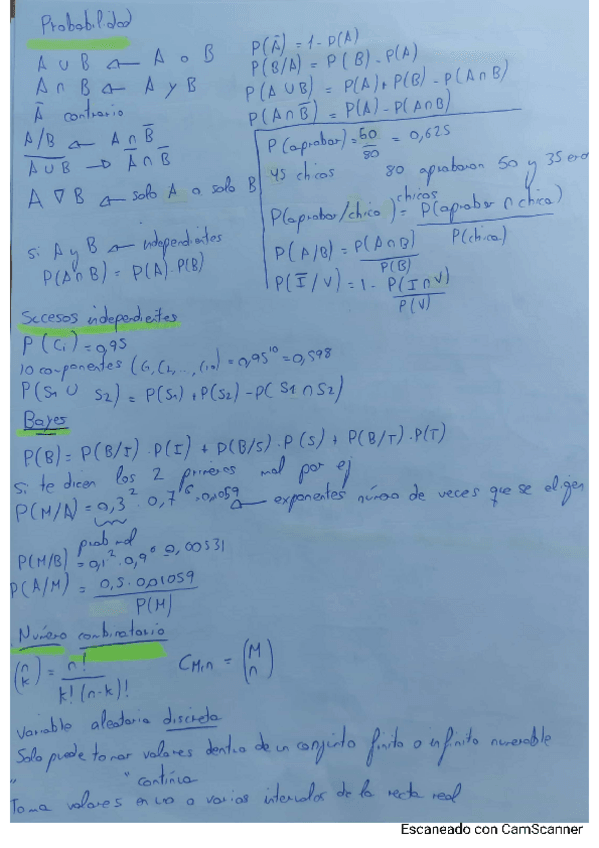 Probabilidad
A ∪ B ← A o B
A ∩ B ← A y B
Ā contrario
A/B ← A ∩ B̄
A∪B → Ā ∩ B̄
A ∇ B ← solo A o solo B
si A y B ← independientes
P(A∩B) = P(A)·P(B)
P(Ā) = 1 - P(A)
P(B/A) = P(B) - P(A)
P(A∪B) = P(A) + P(B) - P(A∩B)
P(A∩B̄) = P(A) - P(A∩B)
P(aprobar) = 50/80 = 0,625
45 chicos 80 aprobaron 50 y 35 eran chicos
P(aprobar/chico) = P(aprobar ∩ chico)/P(chico)
P(A/B) = P(A∩B)/P(B)
P(Ī/V) = 1 - P(I∩V)/P(V)
Sucesos independientes
P(Ci) = 0,95
10 componentes (C1, C2, ..., C10) = 0,95¹⁰ = 0,598
P(S1 ∪ S2) = P(S1) + P(S2) - P(S1 ∩ S2)
Bayes
P(B) = P(B/I)·P(I) + P(B/S)·P(S) + P(B/T)·P(T)
si te dicen los 2 primeros mal por ej
P(M/A) = 0,3² · 0,7 0,01059 ← exponentes número de veces que se eligen
prob mal
P(M/B) = 0,1² · 0,9 0,00531
P(A/M) = 0,5 · 0,01059/P(M)
Número combinatorio
(n k) = n!/k!(n-k)! CM,n = (M n)
Variable aleatoria discreta
Solo puede tomar valores dentro de un conjunto finito o infinito numerable
" " continua
Toma valores en uno o varios intervalos de la recta real
Escaneado con CamScanner